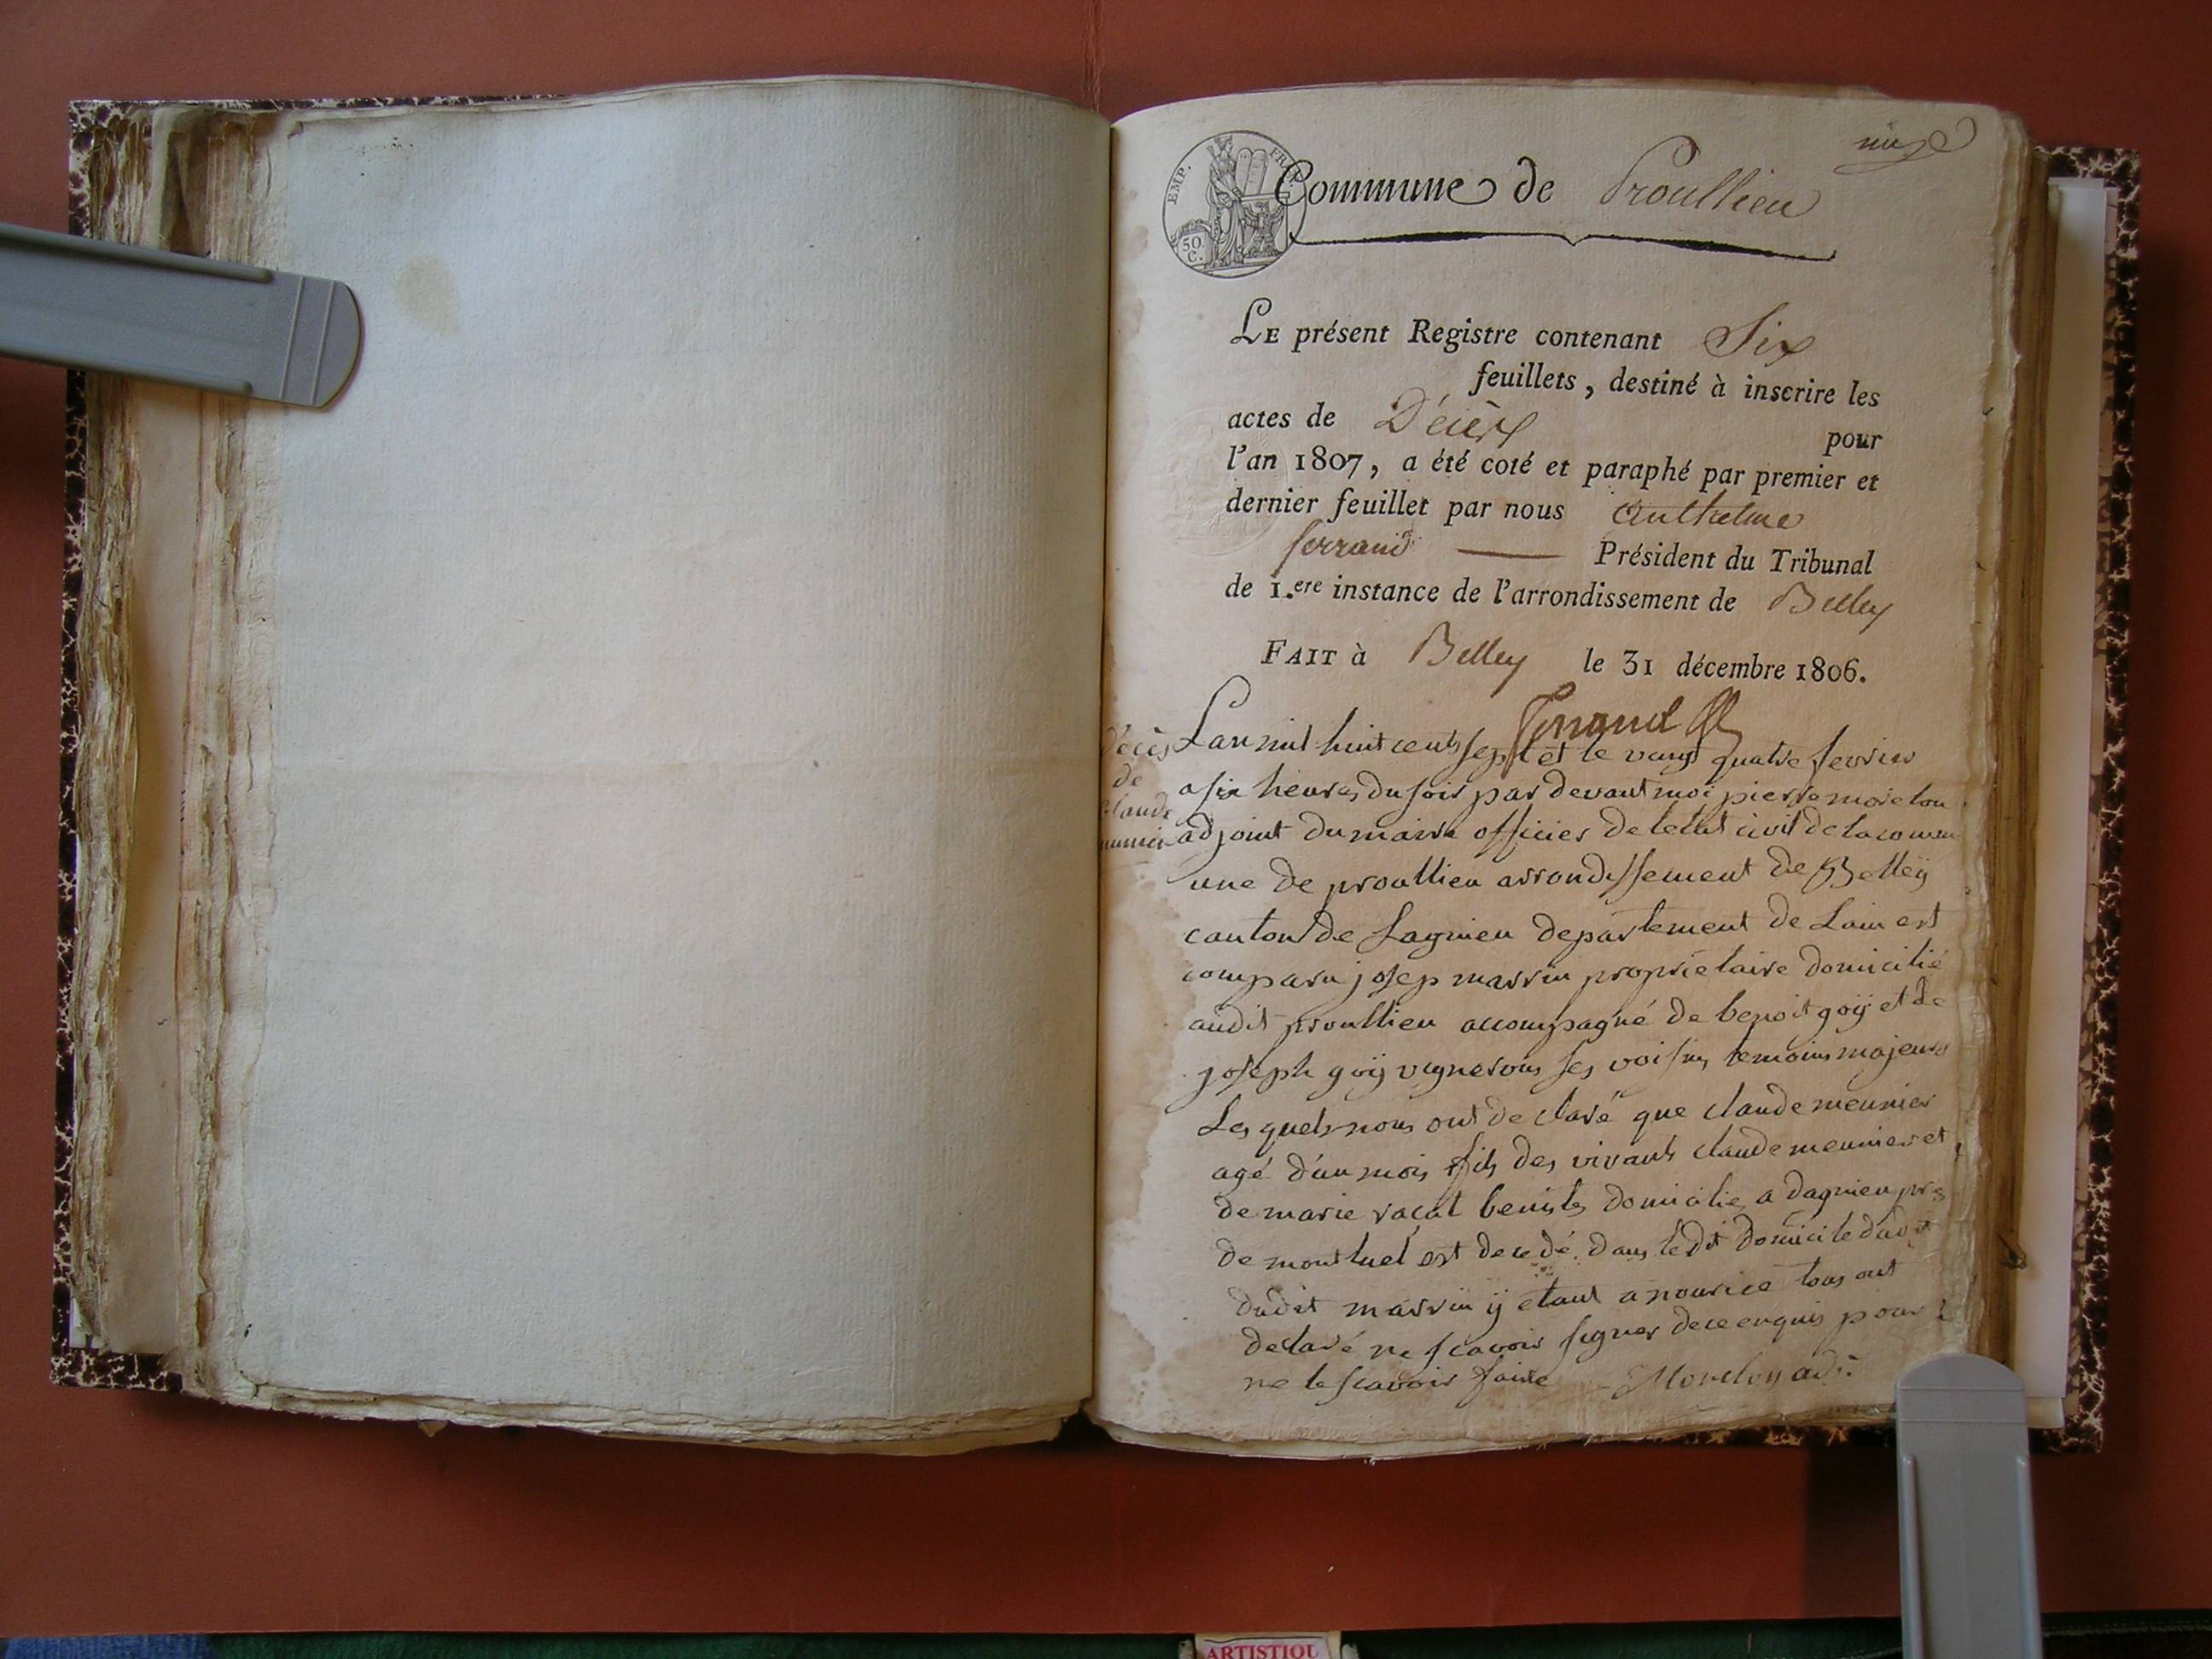 EMP. FRAN.
50
C.
Commune de Proullieu
LE présent Registre contenant Six
feuillets, destiné à inscrire les
actes de Décès pour
l'an 1807, a été coté et paraphé par premier et
dernier feuillet par nous Anthelme
ferrand — Président du Tribunal
de 1.ere instance de l'arrondissement de Belley
FAIT à Belley le 31 décembre 1806.
ferrand
décès
de
claude
Lan mil huit cents sept et le vingt quatre fevrier
a six heures du soir par devant moi pierre moreton
adjoint du maire officier de letat civil de la comm
une de proullieu arrondissement de Belleÿ
canton de Lagnieu departement de Lain est
comparu josep marrin proprietaire domicilié
audit proullieu accompagné de benoit goÿ et de
joseph goÿ vignerons ses voisins temoins majeurs
Les quels nous ont de claré que claude meunier
agé d'un mois fils des vivants claude meunier et
de marie racat benistes domicilie a dagnieu pres
de montluel est decedé dans le dit domicile dudit
dudit marrin ÿ etant a nourice tous ont
declaré ne scavoir signer de ce enquis pour
ne le scavoir faire Moreton adj.
ARTISTIQU